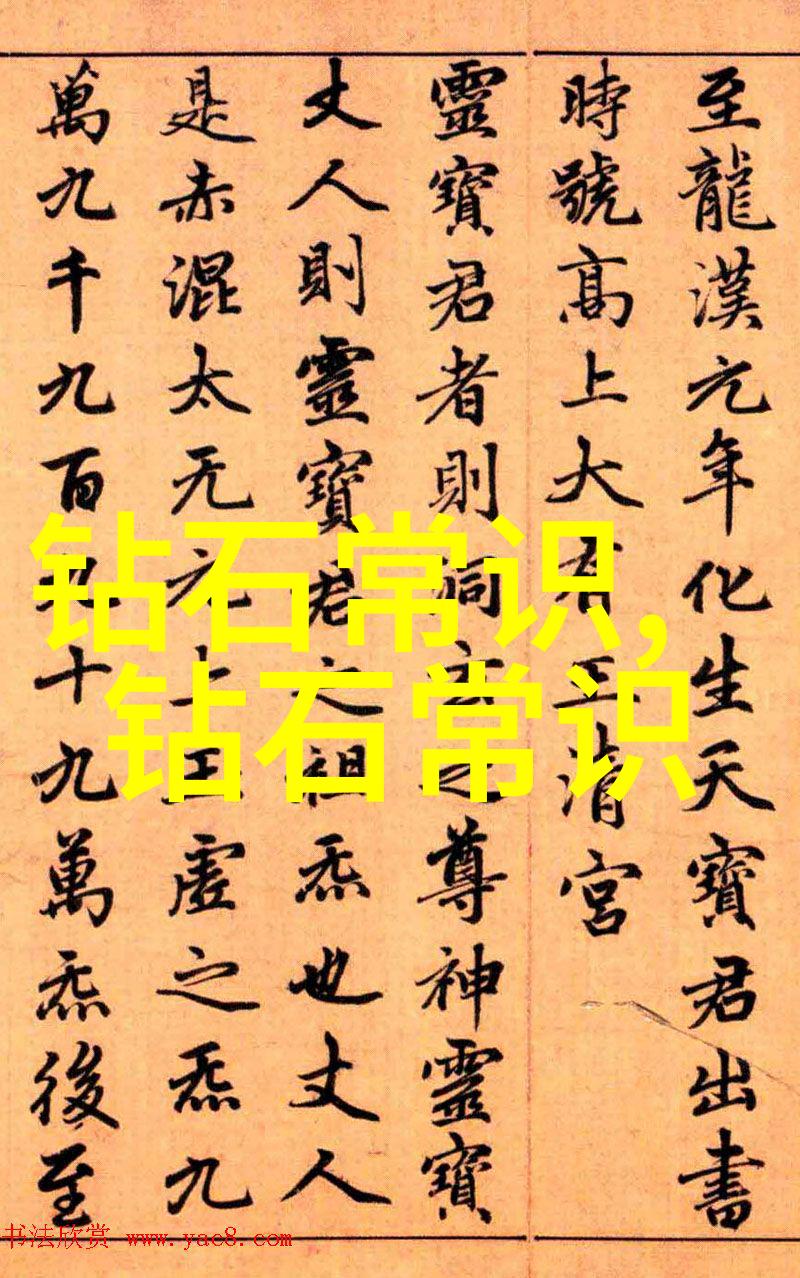 至龍漢元年化生天寶君出書
時號高上大有玉清宮
靈寶君者則洞玄之尊神靈寶
丈人則靈寶君之祖炁也丈人
是赤混太无元上玉虛之炁九
萬九千九百九十九萬炁後至
钻石常识,
钻石常识
书法欣赏 www.yac8.com